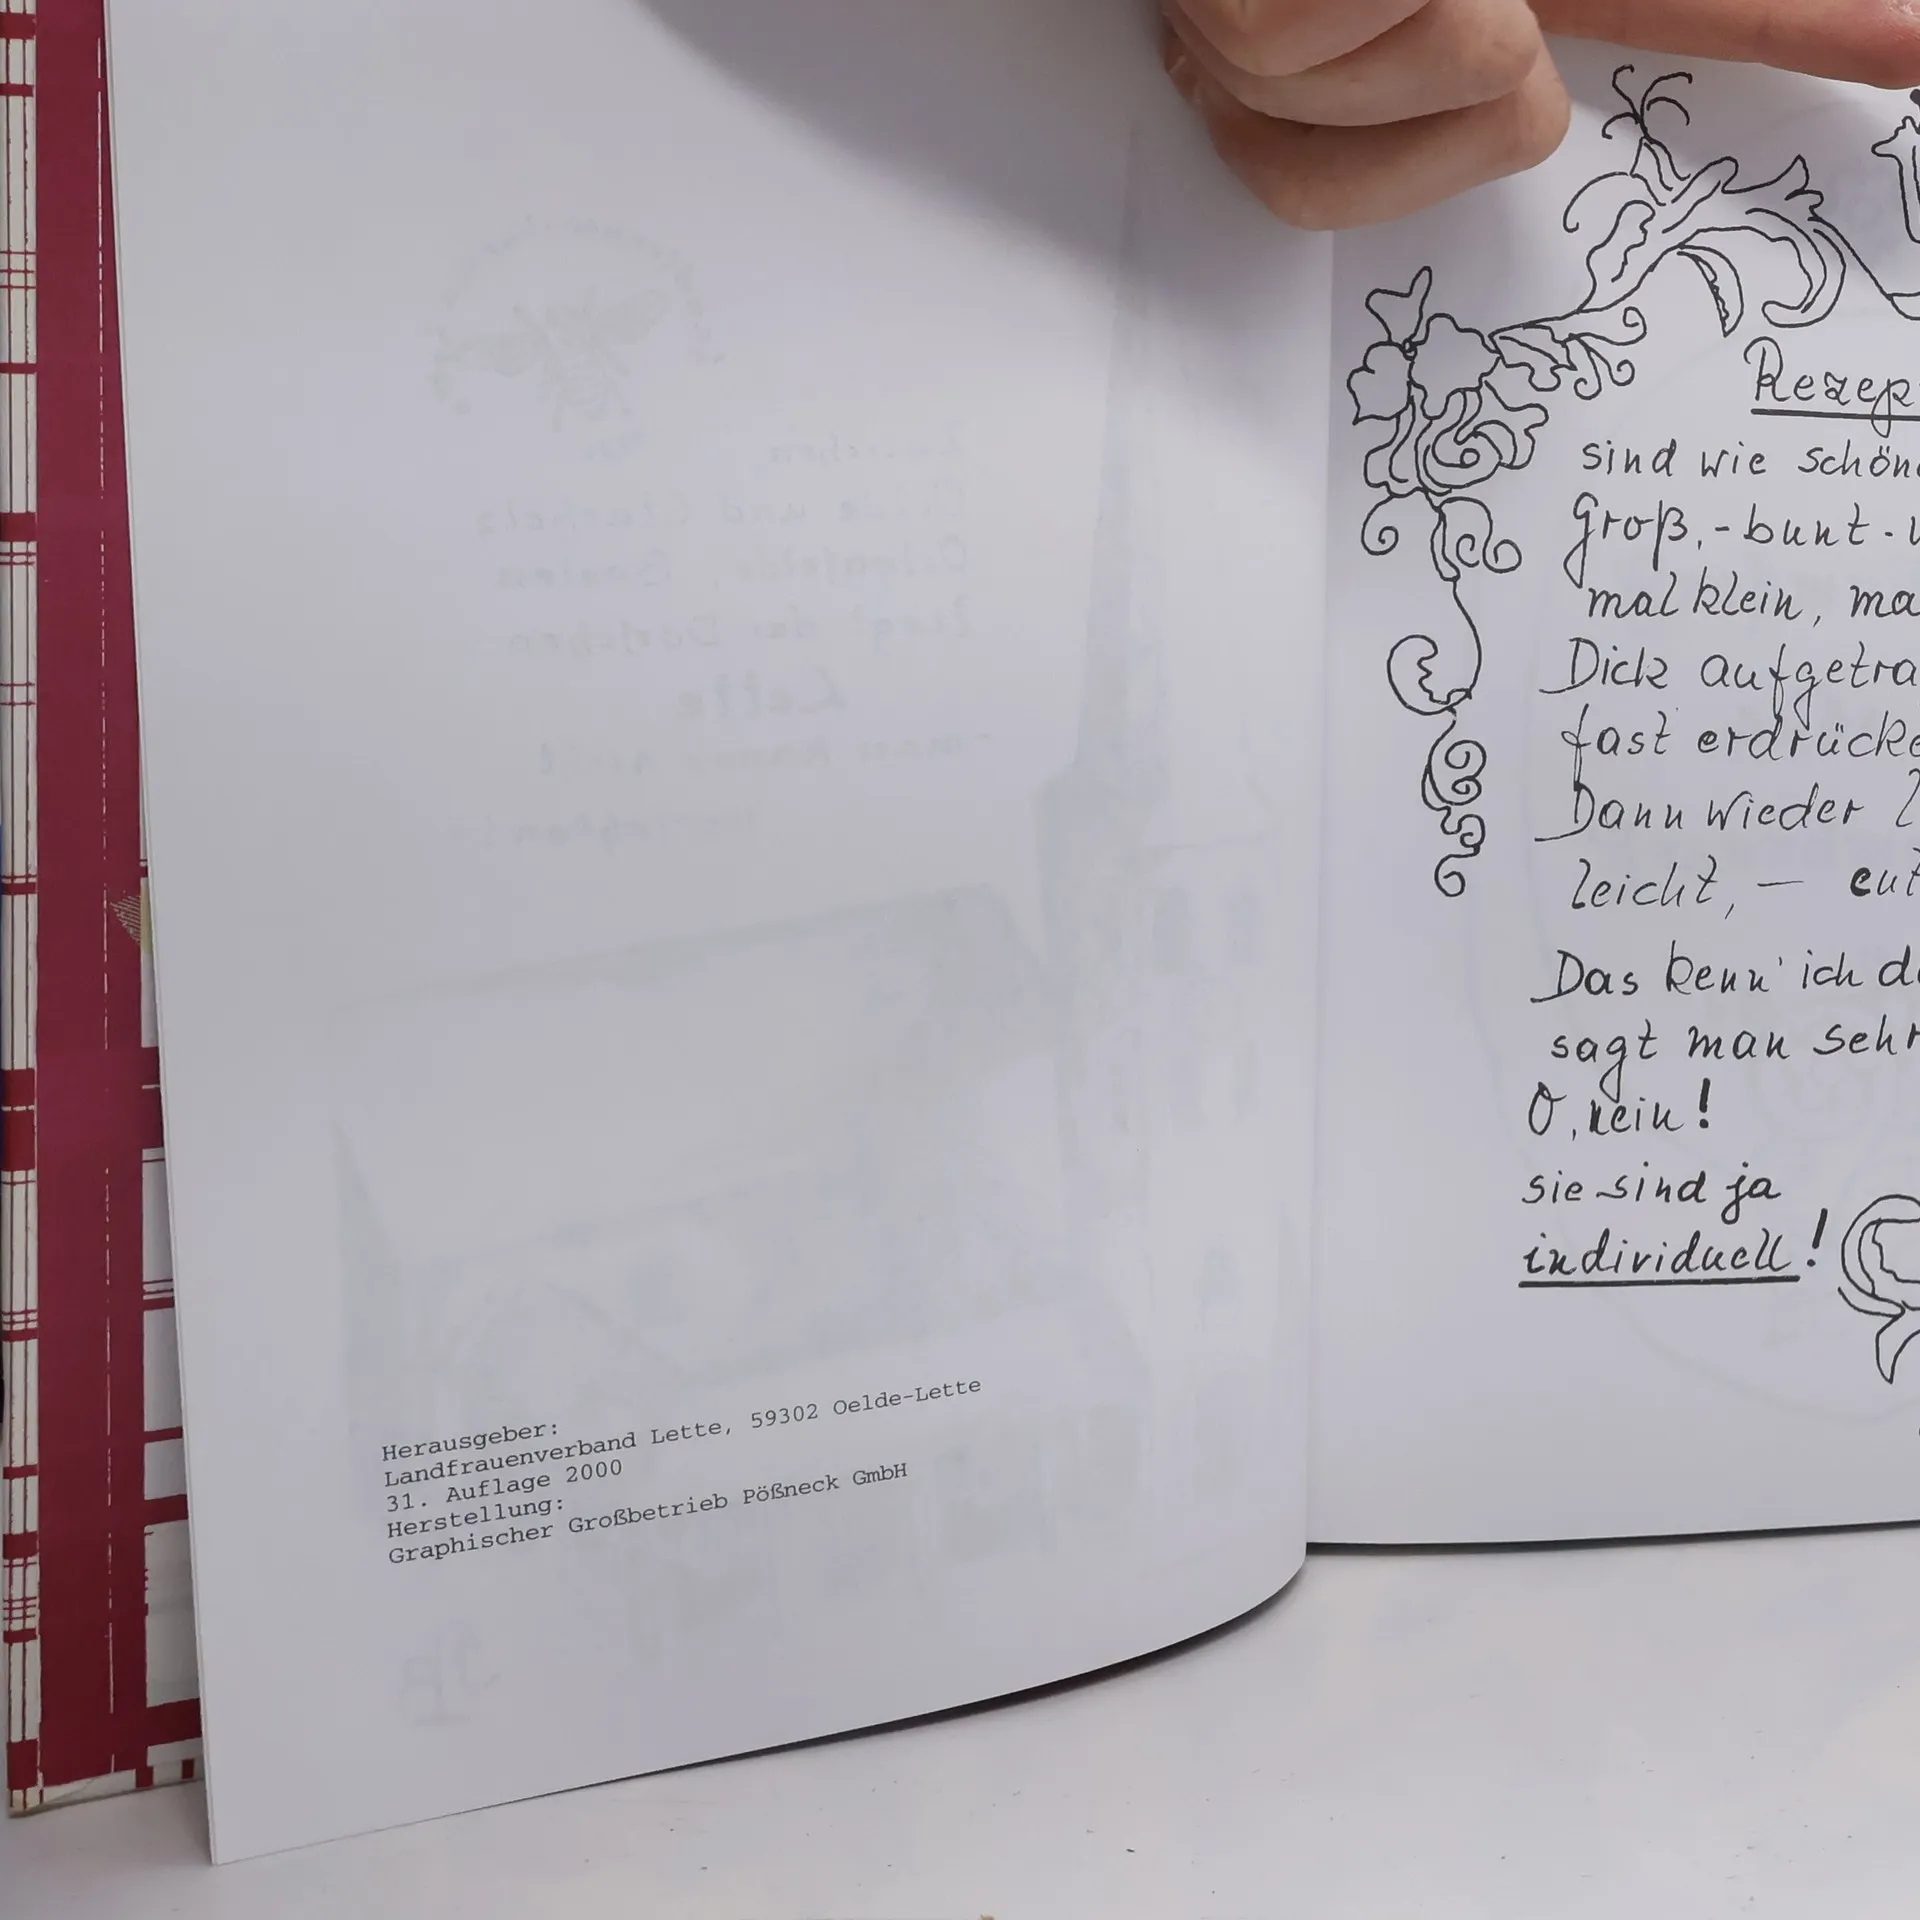 Herausgeber:
Landfrauenverband Lette, 59302 Oelde-Lette
31. Auflage 2000
Herstellung:
Graphischer Großbetrieb Pößneck GmbH
Rezep
sind wie schön
Groß,-bunt-
mal klein, ma
Dick aufgetra
fast erdrücke
Dann wieder
leicht, —
Das kenn' ich
sagt man sehr
O, nein!
sie sind ja
individuell!